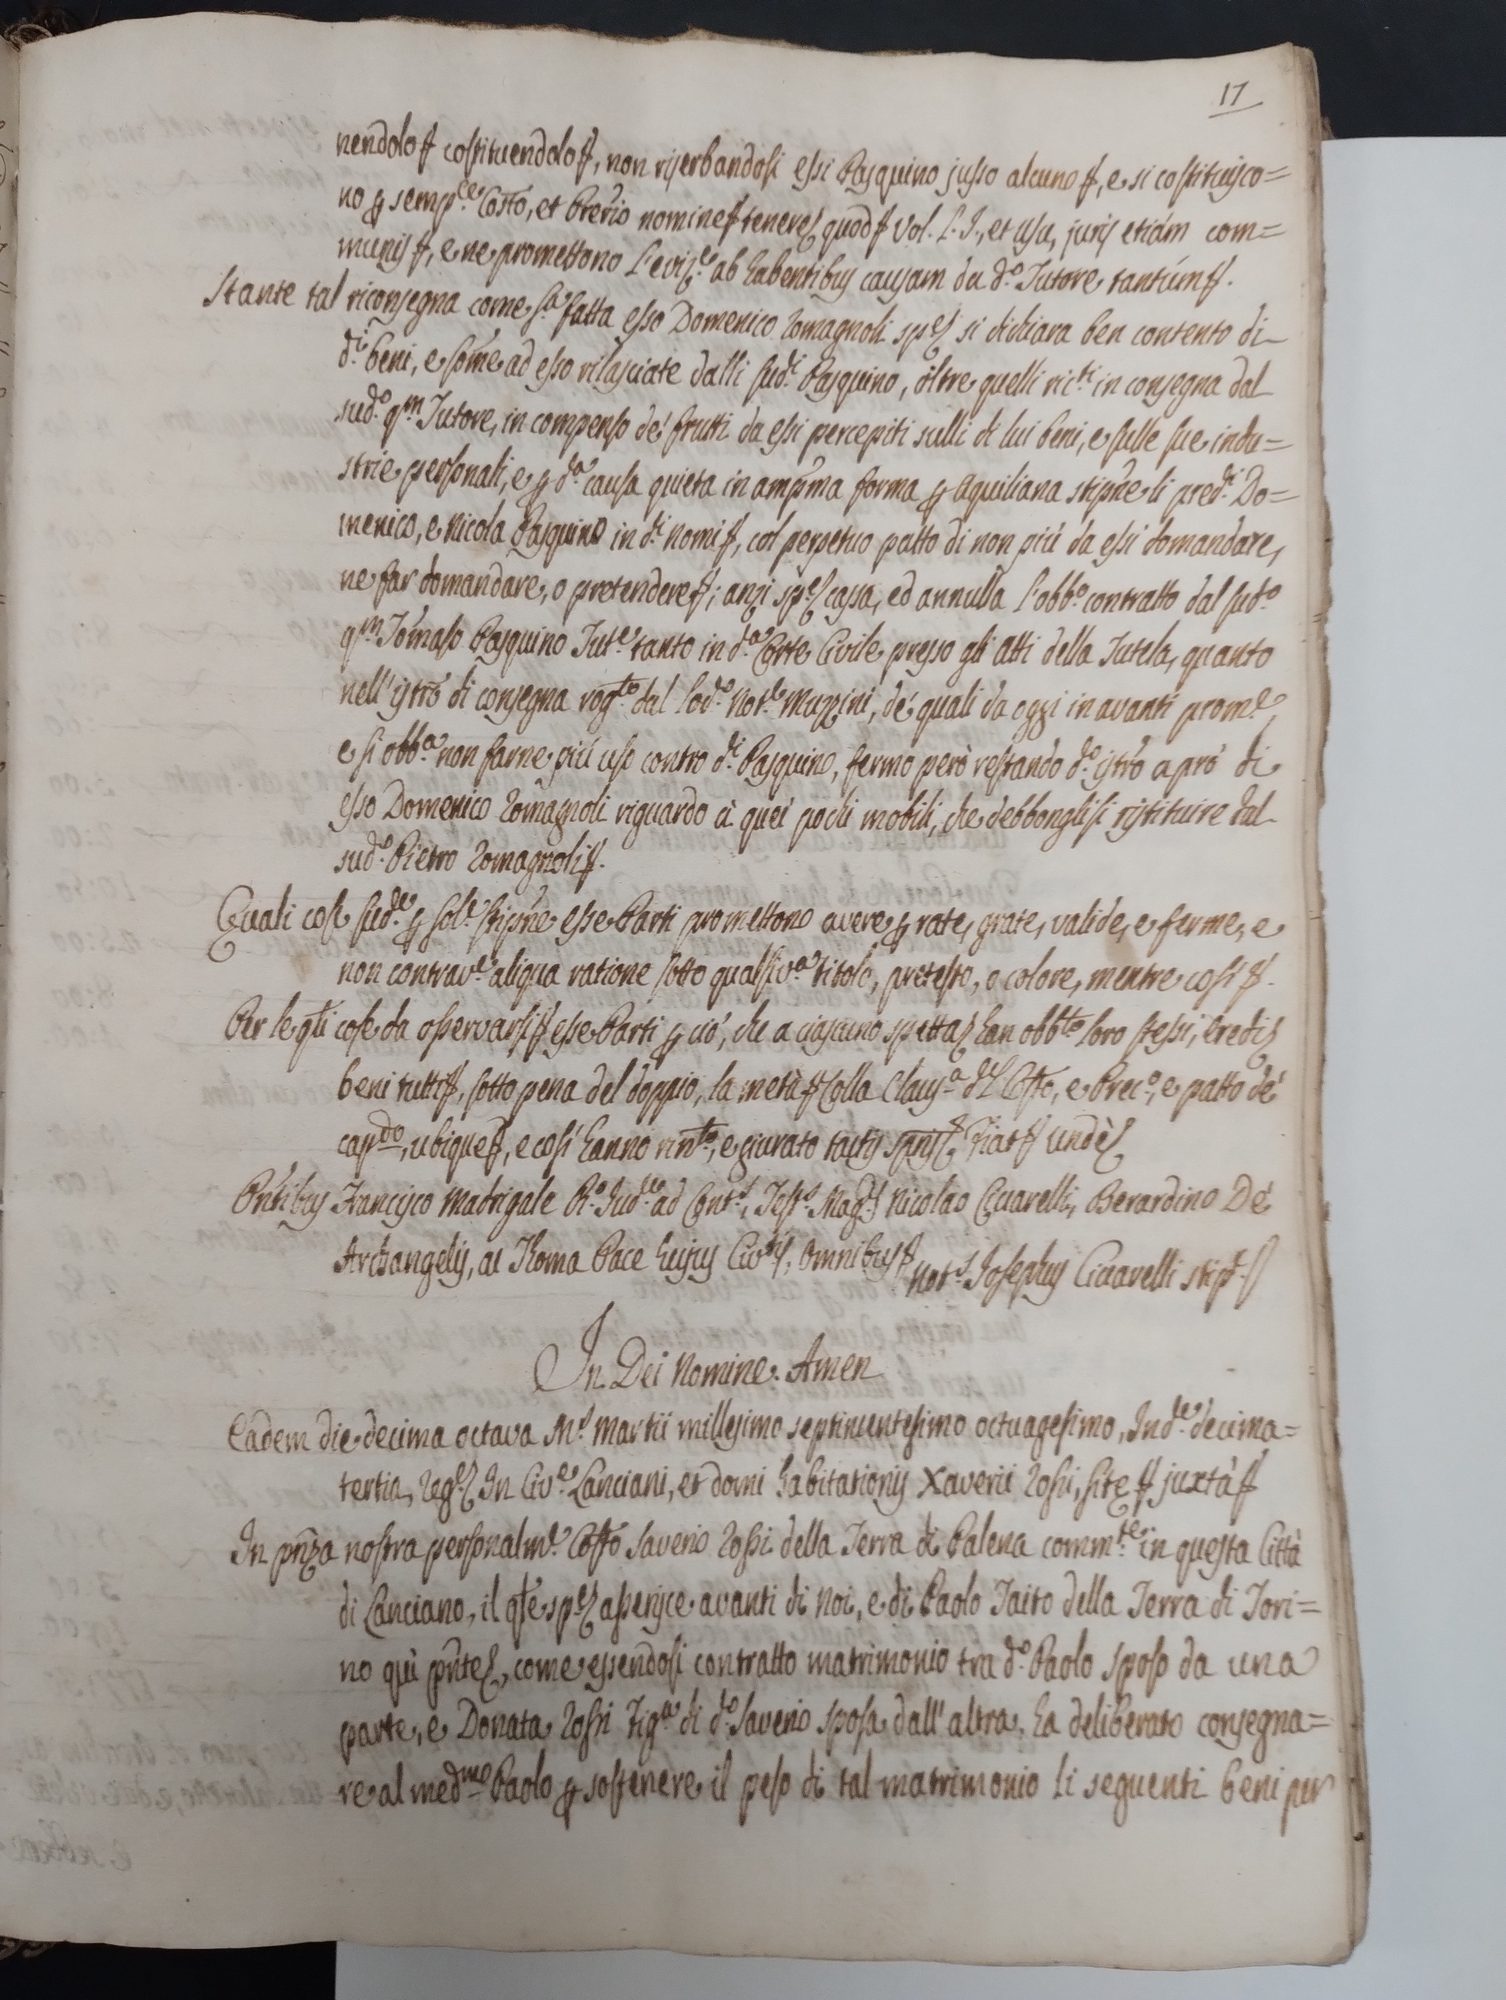 17
nendolo &c. costituendolo &c., non riserbandosi essi Pasquino jusso alcuno &c., e si costituisco=
no p semp.ce Costo, et Prerio nomine &c. tenere &c. quod &c. Vol. L. I., et usu, juris etiám com=
munis &c., e ne promettono l'eviz.e ab habentibus causam da d.o Tutore tantúm &c.
Stante tal riconsegna come s.a fatta esso Domenico Romagnoli sp.e si dichiara ben contento di
d.i beni, e some ad esso rilasciate dalli sud.i Pasquino, oltre quelli ric.ti in consegna dal
sud.o qm Tutore, in compenso de' frutti da essi percepiti sulli di lui beni, e sulle sue indu=
strie personali, e p d.a causa quieta in ampma forma p Aquiliana stipne li pred.i Do=
menico, e Nicola Pasquino in d.i nomi &c., col perpetuo patto di non piú da essi domandare,
ne far domandare, o pretendere &c.; anzi sp.e cassa, ed annulla l'obb.o contratto dal sud.o
qm Tomaso Pasquino Tut.e tanto in d.a Corte Civile presso gli atti della Tutela, quanto
nell'istro di consegna rog.to dal sod.o Not.e Muzzini, de' quali da oggi in avanti prom.e,
e si obb.a non farne piú uso contro d.i Pasquino, fermo però restando d.o istro a pró di
esso Domenico Romagnoli riguardo a quei pochi mobili, che debbonglisi ristituire dal
sud.o Pietro Romagnoli &c.
Quali cose sud.e p sol.e stipne esse Parti promettono avere p rate, grate, valide, e ferme, e
non contrav.e aliqua ratione sotto qualsiv.a titolo, pretesto, o colore, mentre cosí &c.
Per le qli cose da osservarsi &c. esse Parti p ció, che a ciascuno spetta &c. han obb.to loro stessi, eredi &c.
beni tutti &c., sotto pena del doppio, la metà &c. Colla Claus.a del Costo, e Prec.o, e patto de
cap.do, ubique &c., e cosí hanno rin.to, e giurato tactis spris &c. Fiat &c. undè &c.
Pntibus Francisco Madrigale R.o Jud.e ad Cont.s, Test.s Mag.s Nicolao Ciccarelli, Berardino De
Archangelis, ac Thoma Pace hujus Civ.is, omnibus &c. Not.s Josephus Ciccarelli stip.s
In Dei Nomine. Amen
Eadem die decima octava M.s Martii millesimo septincentesimo octuagesimo, Ind.e decima=
tertia, Reg.e &c. In Civ.e Lanciani, et domi habitationis Xaverii Rossi, sitę &c. juxtà &c.
In pnza nostra personalm.e Costo Saverio Rossi della Terra di Palena comm.te in questa Città
di Lanciano, il qle sp.e asserisce avanti di Noi, e di Paolo Taito della Terra di Tori=
no quì pnte &c., come essendosi contratto matrimonio tra d.o Paolo sposo da una
parte, e Donata Rossi Fig.a di d.o Saverio sposa dall'altra. ha deliberato consegna=
re al med.mo Paolo p sostenere il peso di tal matrimonio li seguenti beni per